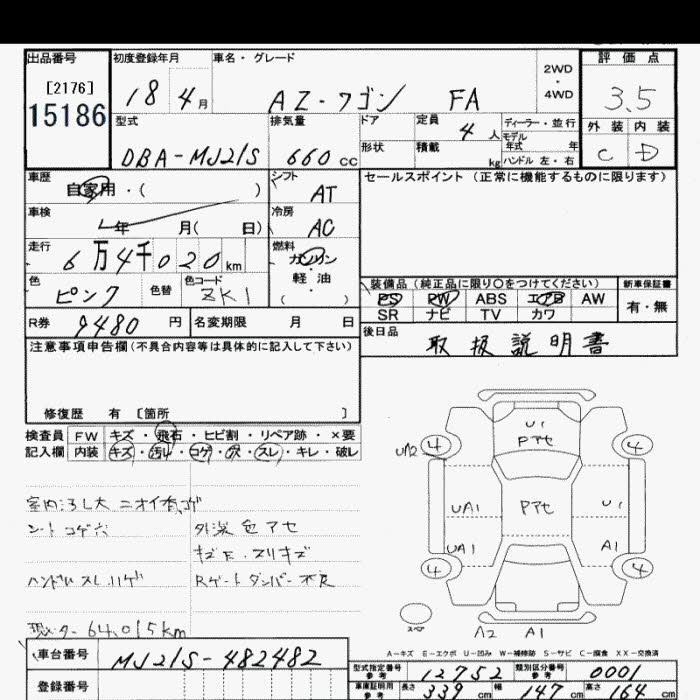 出品番号 初度登録年月 車名・グレード 評価点
[2176] 2WD・4WD
15186 18 4月 AZ-ワゴン FA 3.5
型式 排気量 ドア 定員 4人 ディーラー・並行 外装 内装
モデル年式 年
DBA-MJ21S 660cc 形状 積載 kg ハンドル 左・右 C D
車歴 自家用・( ) シフト AT セールスポイント (正常に機能するものに限ります)
車検 年 月( 日) 冷房 AC
走行 6万4千020km 燃料 ガソリン・軽油( )
色 ピンク 色替 色コード ZK1
装備品(純正品に限り〇をつけてください) 新車保証書
PS PW ABS エアB AW 有・無
SR ナビ TV カワ
R券 9480円 名変期限 月 日
後日品 取扱説明書
注意事項申告欄(不具合内容等は具体的に記入して下さい)
修復歴 有 [箇所 ]
検査員 FW キズ・飛石・ヒビ割・リペア跡・×要
記入欄 内装 キズ・汚レ・コゲ・穴・スレ・キレ・破レ
シートコゲ穴 外装色アセ
キズ巨・スリキズ
ハンドルスレ ハゲ Rゲートダンパー不良
現メーター 64,015km
U1
Pアセ
UA2 4 4
UA1 Pアセ U1
UA1 A1
4 4
スペア
A2 A1
A-キズ E-エクボ U-凹み W-補修跡 S-サビ C-腐食 XX-交換済
車台番号 MJ21S-482482
型式指定番号 参考 12752 類別区分番号 参考 0001
登録番号
車庫証明用 参考 長さ 339cm 幅 147cm 高さ 164cm